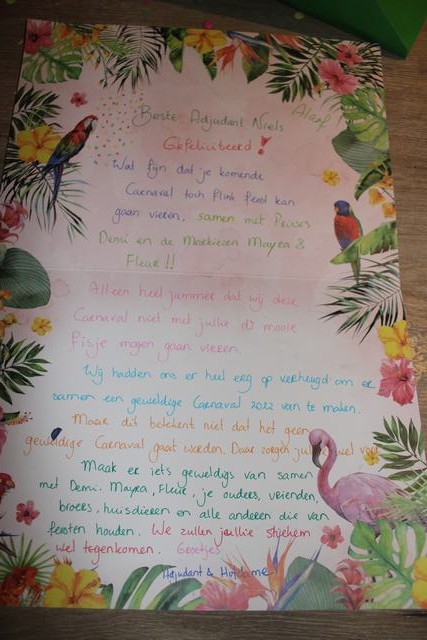 Alaaf!
Beste Adjudant Niels
Gefeliciteerd!
Wat fijn dat je komende
Carnaval toch flink feest kan
gaan vieren. Samen met Prinses
Demi en de Markiezen Mayra &
Fleur!!
Alleen heel jammer dat wij deze
Carnaval niet met jullie dit mooie
Fisje mogen gaan vieren.
Wij hadden ons er heel erg op verheugd om er
samen een geweldige Carnaval 2022 van te maken.
Maar dit betekent niet dat het geen
geweldige Carnaval gaat worden. Daar zorgen jullie wel voor
Maak er iets geweldigs van samen
met Demi. Mayra, Fleur, je ouders, vrienden,
broers, huisdieren en alle anderen die van
feesten houden. We zullen jullie stiekem
wel tegenkomen. Groetjes
Adjudant &